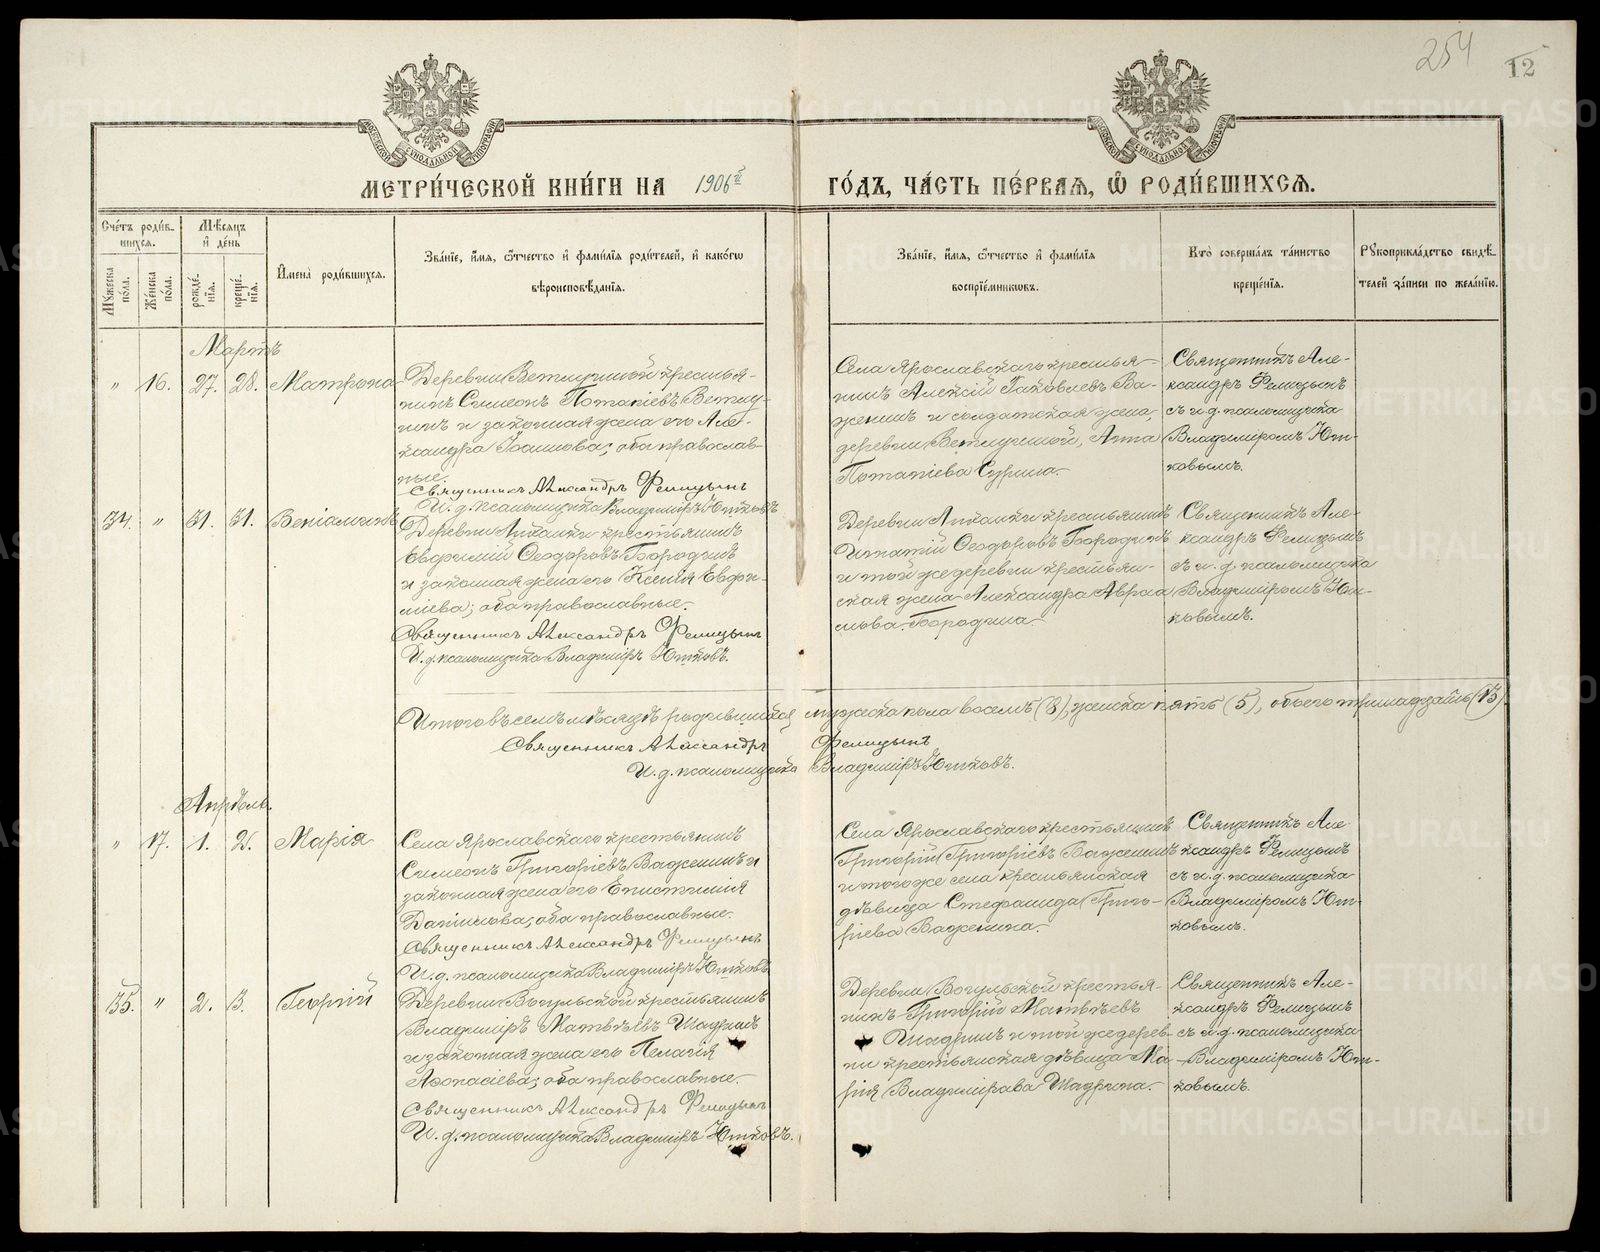 254
12
МЕТРИ́ЧЕСКОЙ КНИ́ГИ НА 1906й ГО́ДЪ, ЧА́СТЬ ПЕ́РВАЯ, Ѽ РОДИ́ВШИХСЯ.
Сче́тъ роди́в-
шихся.
Мужеска пола.
Же́нска пола.
Мѣсяцъ
и҆ де́нь
рожде́-
нїя.
креще́-
нїя.
И҆мена̀ роди́вшихся.
Зва́нїе, и҆́мя, ѻ҆́тчество и҆ фами́лїя роди́телей, и҆ како́гѡ
вѣроисповѣ́данїя.
Зва́нїе, и҆́мя, ѻ҆́тчество и҆ фами́лїя
воспрїе́мникѡвъ.
Кто̀ соверша́лъ та́инство
креще́нїя.
Рꙋкоприкла́дство свидѣ́-
телей за́писи по жела́нїю.
Мартъ
" 16. 27. 28. Матрона
Деревни Ветлугиной крестья-
нинъ Симеонъ Потапіевъ Ветлу-
гинъ и законная жена его Але-
ксандра Іоаннова; оба православ-
ные.
Священникъ Александръ Фелицынъ
И. д. псаломщика Владиміръ Ютковъ
Села Ярославскаго крестья-
нинъ Алексій Іаковлевъ Ва-
женинъ и солдатская жена,
деревни Ветлугиной, Анна
Потапіева Сурина.
Священникъ Але-
ксандръ Фелицынъ
съ и. д. псаломщика
Владиміромъ Ют-
ковымъ.
34. " 31. 31. Веніаминъ
крестьянинъ
Евфимій Ѳеодоровъ Бородинъ
и законная жена его Ксенія Евфи-
міева; оба православные.
Священникъ Александръ Фелицынъ
И. д. псаломщика Владиміръ Ютковъ.
крестьянинъ
Игнатій Ѳеодоровъ Бородинъ
и той же деревни крестьян-
ская жена Александра Авраа
мова Бородина.
Священникъ Але-
ксандръ Фелицынъ
съ и. д. псаломщика
Владиміромъ Ют-
ковымъ.
Итого въ семъ мѣсяцѣ родившихся мужеска пола восемь (8), женска пять (5), обоего тринадцать (13).
Священникъ Александръ Фелицынъ
И. д. псаломщика Владиміръ Ютковъ.
Апрѣль.
" 17. 1. 2. Марія
Села Ярославскаго крестьянинъ
Симеонъ Григоріевъ Важенинъ и
законная жена его Епистимія
Даніилова; оба православные.
Священникъ Александръ Фелицынъ
И. д. псаломщика Владиміръ Ютковъ
Села Ярославскаго крестьянинъ
Григорій Григоріевъ Важенинъ
и того же села крестьянская
дѣвица Стефанида Григо-
ріева Важенина.
Священникъ Але
ксандръ Фелицынъ
съ и. д. псаломщика
Владиміромъ Ют-
ковымъ.
35. " 2. 3. Георгій
Деревни Вогульской крестьянинъ
Владиміръ Матвѣевъ Шадринъ
и законная жена его Пелагія
Аѳонасіева; оба православные.
Священникъ Александръ Фелицынъ
И. д. псаломщика Владиміръ Ютковъ.
Деревни Вогульской крестья-
нинъ Григорій Матвѣевъ
Шадринъ и той же дерев-
ни крестьянская дѣвица Ма-
рія Владимірова Шадрина.
Священникъ Але-
ксандръ Фелицынъ
съ и. д. псаломщика
Владиміромъ Ют-
ковымъ.